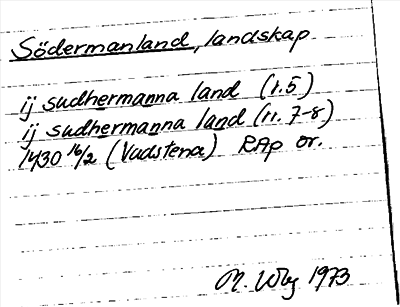 Södermanland, landskap
ij sudhermanna land (r.5)
ij sudhermanna land (rr. 7-8)
1430 16/2 (Vadstena) RAp or.
1973